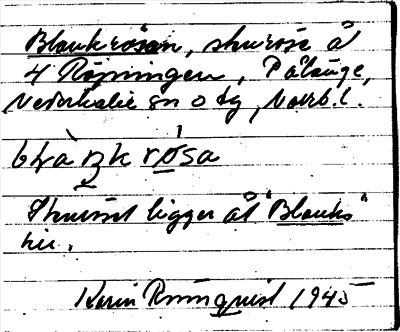 Blankrösan, skurose å
4 Röjningen, Pålänge,
Nederkalix sn
blàŋk rósa
Skurset ligger åt "Blanks"
hu.
Karin Rönnqvist 1945